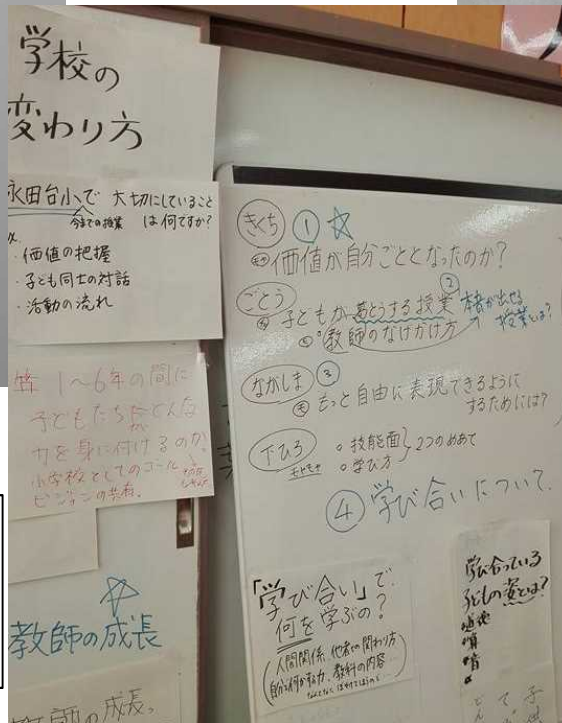 学校の
変わり方
永田台小で 大切にしていること
今までの授業 は何ですか?
・価値の把握
・子ども同士の対話
・活動の流れ
1〜6年の間に
子どもたちはどんな
力を身に付けるのか。
小学校としてのゴール
ビジョンの共有。
☆
教師の成長
教師の成長。
きくち ① ☆
価値が自分ごととなったのか?
ごとう ②
子どもが 授業 本音が出せる
授業とは?
教師のなげかけ方
ながしま ③
もっと自由に表現できるように
するためには?
下ひろ
・技能面
・学び方
2つのめあて
④ 学び合いについて
「学び合い」で
何を学ぶの?
人間関係、他者との関わり方
教科の内容…
学び合っている
子どもの姿とは?